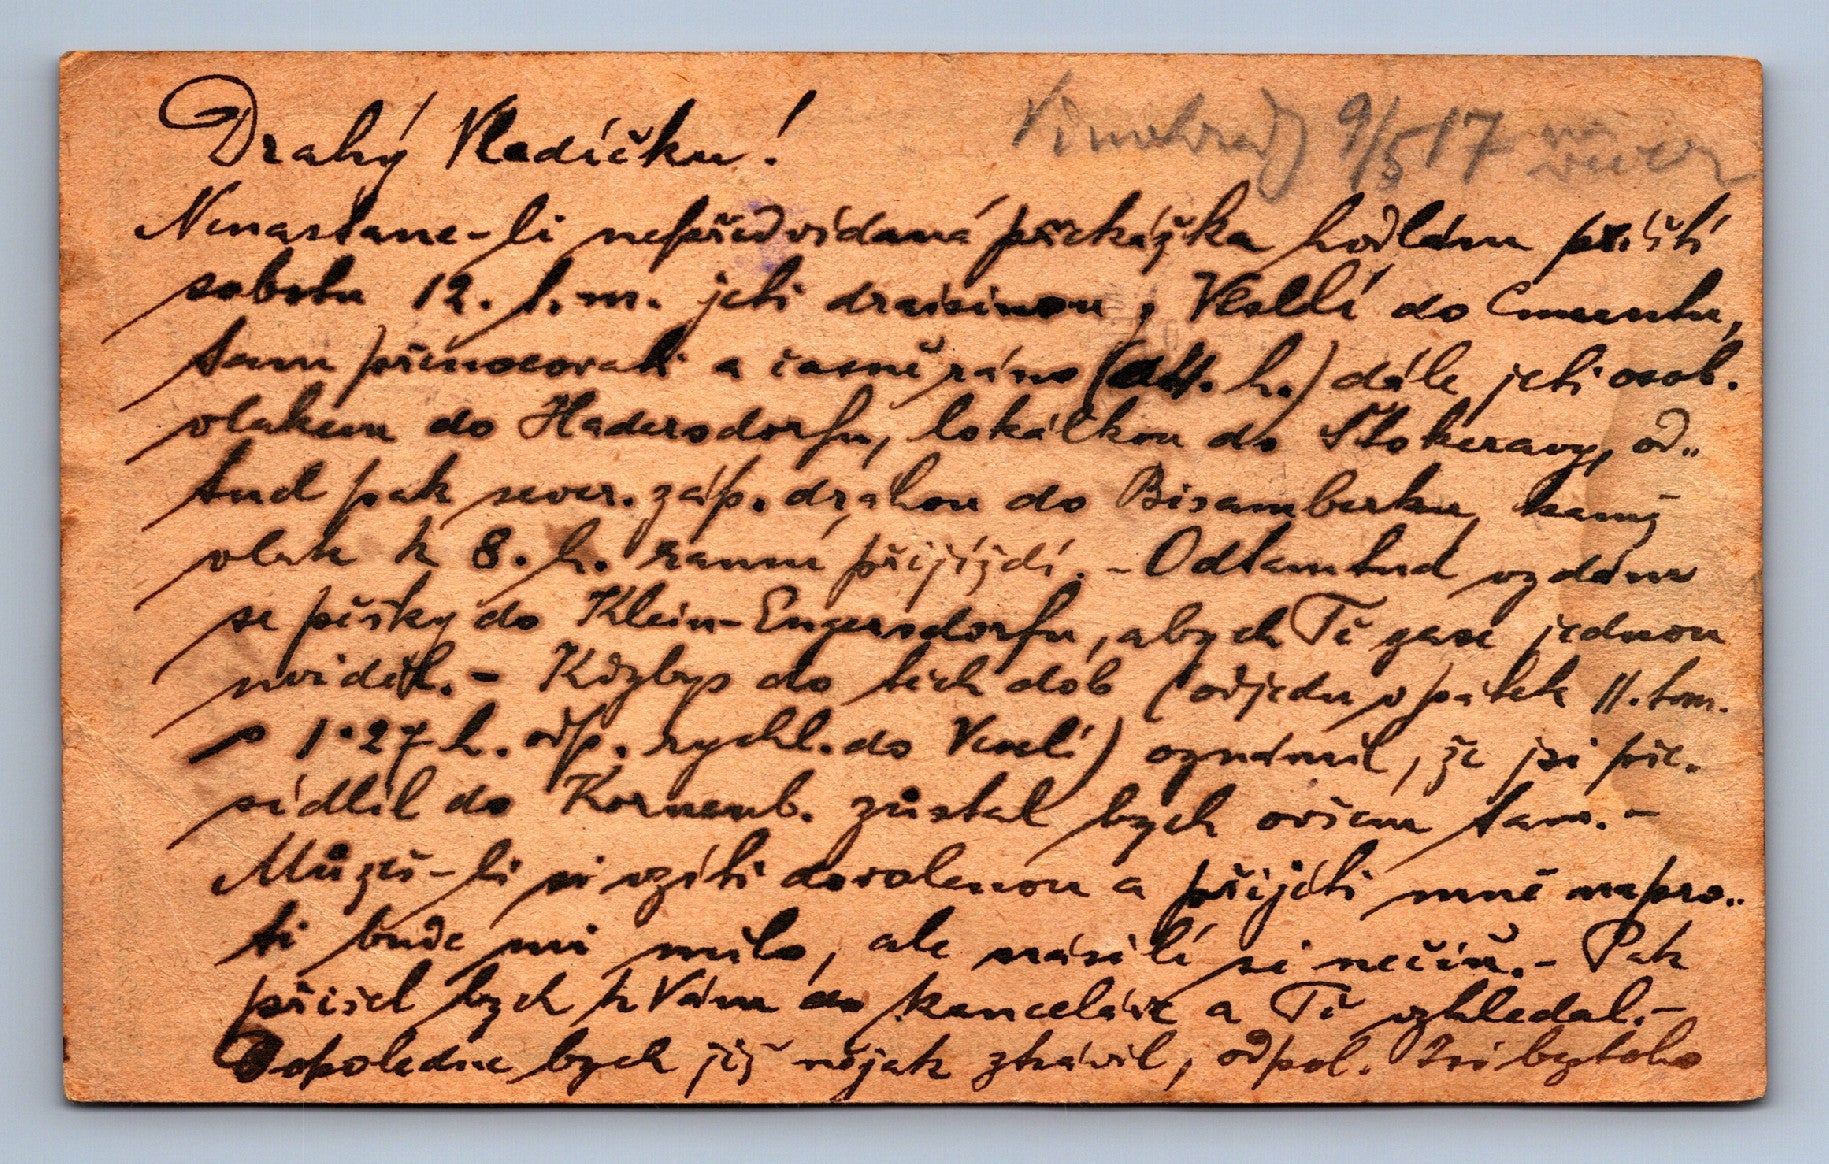 Drahý Vladíčku!
Vinohrady 9/5 17
Nenastane-li nepředvídaná překážka hodlám příští
sobotu 12. t. m. jeti draisinou z Veselí do Cmuntu,
tam přenocovati a časně ráno ( h.) dále jeti osob.
vlakem do Hadersdorfu, lokálkou do Stokeravy, od„
tud pak sever. záp. drahou do Bisamberku, kamž
vlak k 8. h. ranní přijíždí. – Odtamtud vydám
se pěšky do Klein-Engersdorfu, abych Tě zase jednou
uviděl. – Kdybys do těch dob (odjedu v pátek 11. tom.
o 1·27 h. odp. rychl. do Veselí) oznámil, že jsi pře„
sídlil do Korneub. zůstal bych ovšem tam. –
Můžeš-li si vzíti dovolenou a přijeti mně napro„
ti bude mi milo, ale násilí si nečiň. – Pak
přišel bych k Vám do kanceláře a Tě vyhledal. –
Dopoledne bych již nějak ztrávil, odpol. bytoho